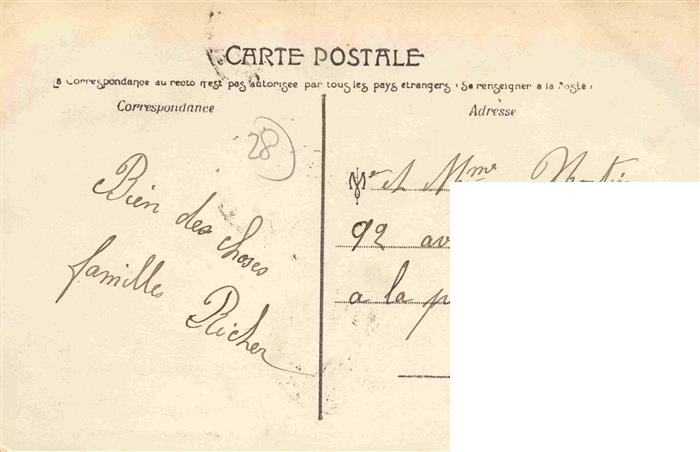 CARTE POSTALE
La Correspondance au recto n'est pas autorisée par tous les pays étrangers (Se renseigner à la Poste)
Correspondance
Adresse
28
Bien des choses
familles Richer
Mr et Mme
92 av
a la p